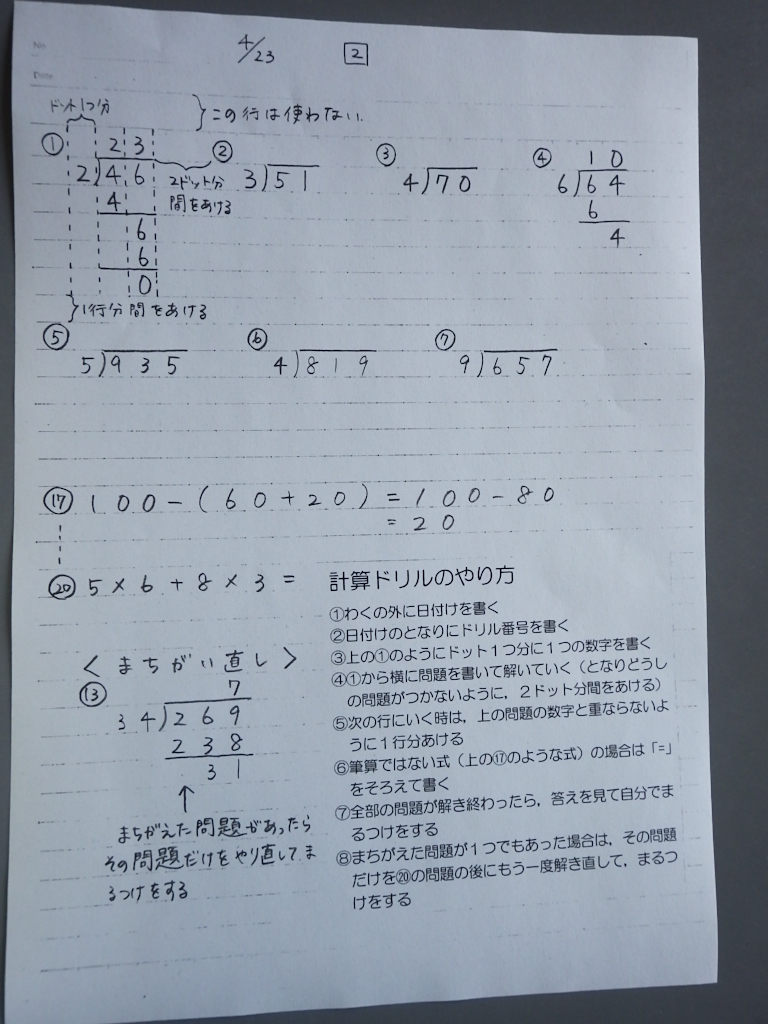 No.
Date
4/23 2
ドット1つ分
}この行は使わない.
① 2 3
2)4 6
4
6
6
0
2ドット分
間をあける
}1行分間をあける
② 3)5 1
③ 4)7 0
④ 1 0
6)6 4
6
4
⑤ 5)9 3 5
⑥ 4)8 1 9
⑦ 9)6 5 7
⑰ 1 0 0 - ( 6 0 + 2 0 ) = 1 0 0 - 8 0
= 2 0
⑳ 5 × 6 + 8 × 3 =
〈 まちがい直し 〉
⑬ 7
3 4)2 6 9
2 3 8
3 1
↑
まちがえた問題があったら
その問題だけをやり直してま
るつけをする
計算ドリルのやり方
①わくの外に日付けを書く
②日付けのとなりにドリル番号を書く
③上の①のようにドット1つ分に1つの数字を書く
④①から横に問題を書いて解いていく（となりどうし
の問題がつかないように，2ドット分間をあける）
⑤次の行にいく時は，上の問題の数字と重ならないよ
うに1行分あける
⑥筆算ではない式（上の⑰のような式）の場合は「=」
をそろえて書く
⑦全部の問題が解き終わったら，答えを見て自分でま
るつけをする
⑧まちがえた問題が1つでもあった場合は，その問題
だけを⑳の問題の後にもう一度解き直して，まるつ
けをする